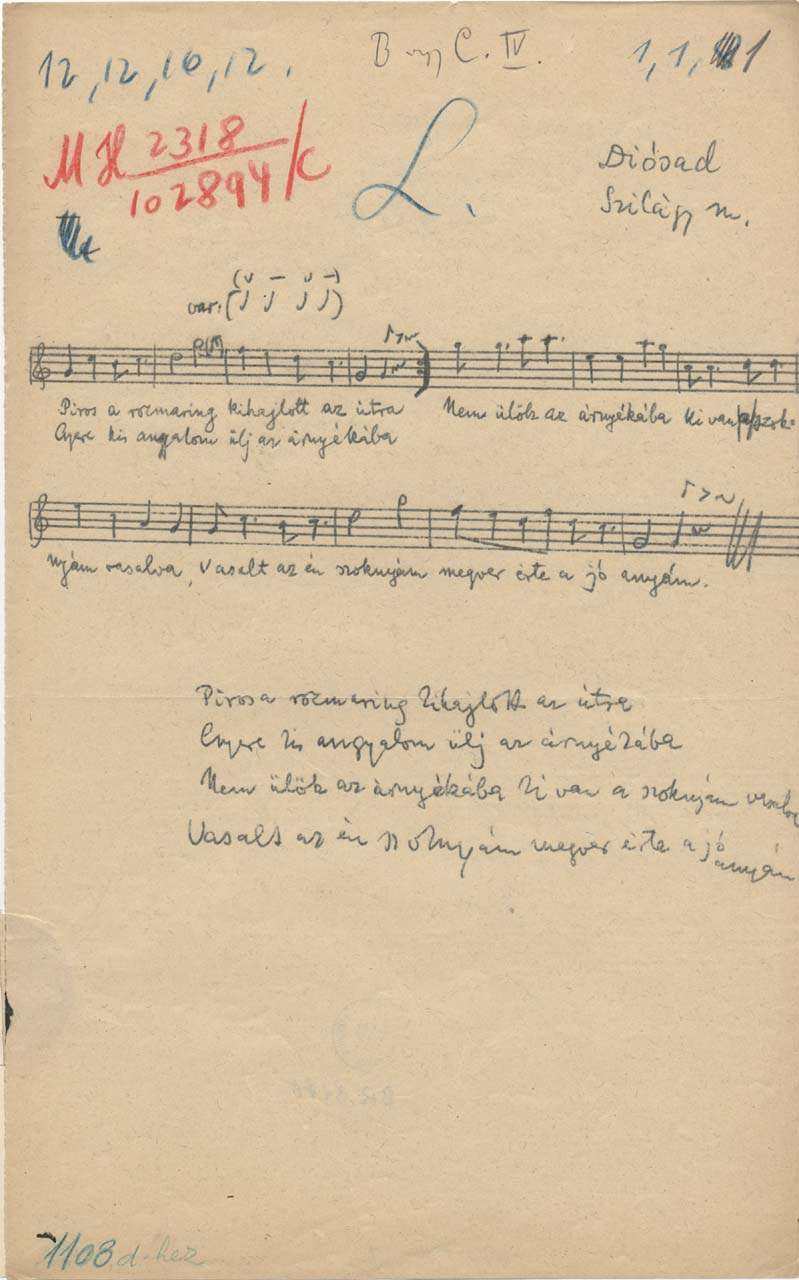 12, 12, 10, 12.
B vagy C. IV.
1, 1, 1
MH 2318/102894/c
L.
Diósad
Szilágy m.
var:
Piros a rozmaring kihajlott az útra
Nem ülök az árnyékába ki van a szok=
Gyere kis angyalom ülj az árnyékába
nyám vasalva, Vasalt az én szoknyám megver érte a jó anyám.
Piros a rozmaring kihajlott az útra
Gyere kis angyalom ülj az árnyékába
Nem ülök az árnyékába ki van a szoknyám vasalva
Vasalt az én szoknyám megver érte a jó
anyám
1108 d-hez